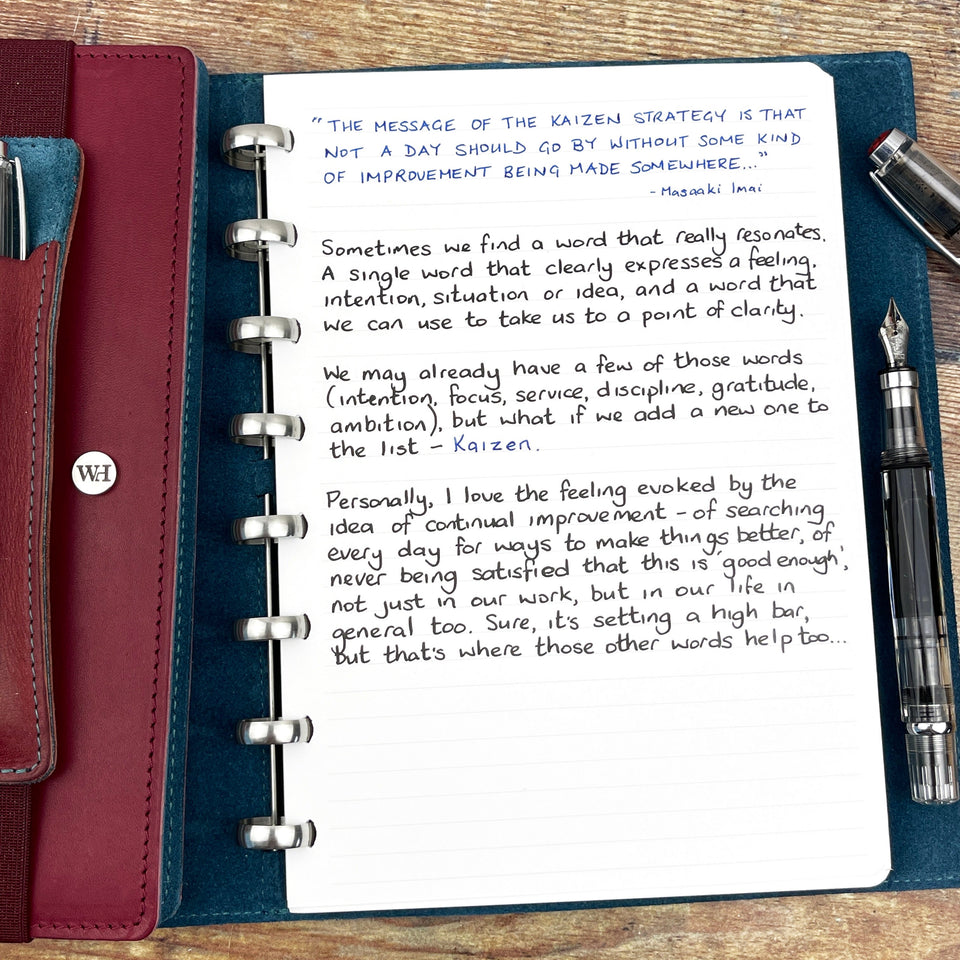 "THE MESSAGE OF THE KAIZEN STRATEGY IS THAT
NOT A DAY SHOULD GO BY WITHOUT SOME KIND
OF IMPROVEMENT BEING MADE SOMEWHERE..."
- Masaaki Imai
Sometimes we find a word that really resonates.
A single word that clearly expresses a feeling,
intention, situation or idea, and a word that
we can use to take us to a point of clarity.
We may already have a few of those words
(intention, focus, service, discipline, gratitude,
ambition), but what if we add a new one to
the list - Kaizen.
Personally, I love the feeling evoked by the
idea of continual improvement - of searching
every day for ways to make things better, of
never being satisfied that this is 'good enough',
not just in our work, but in our life in
general too. Sure, it's setting a high bar,
but that's where those other words help too...
WH